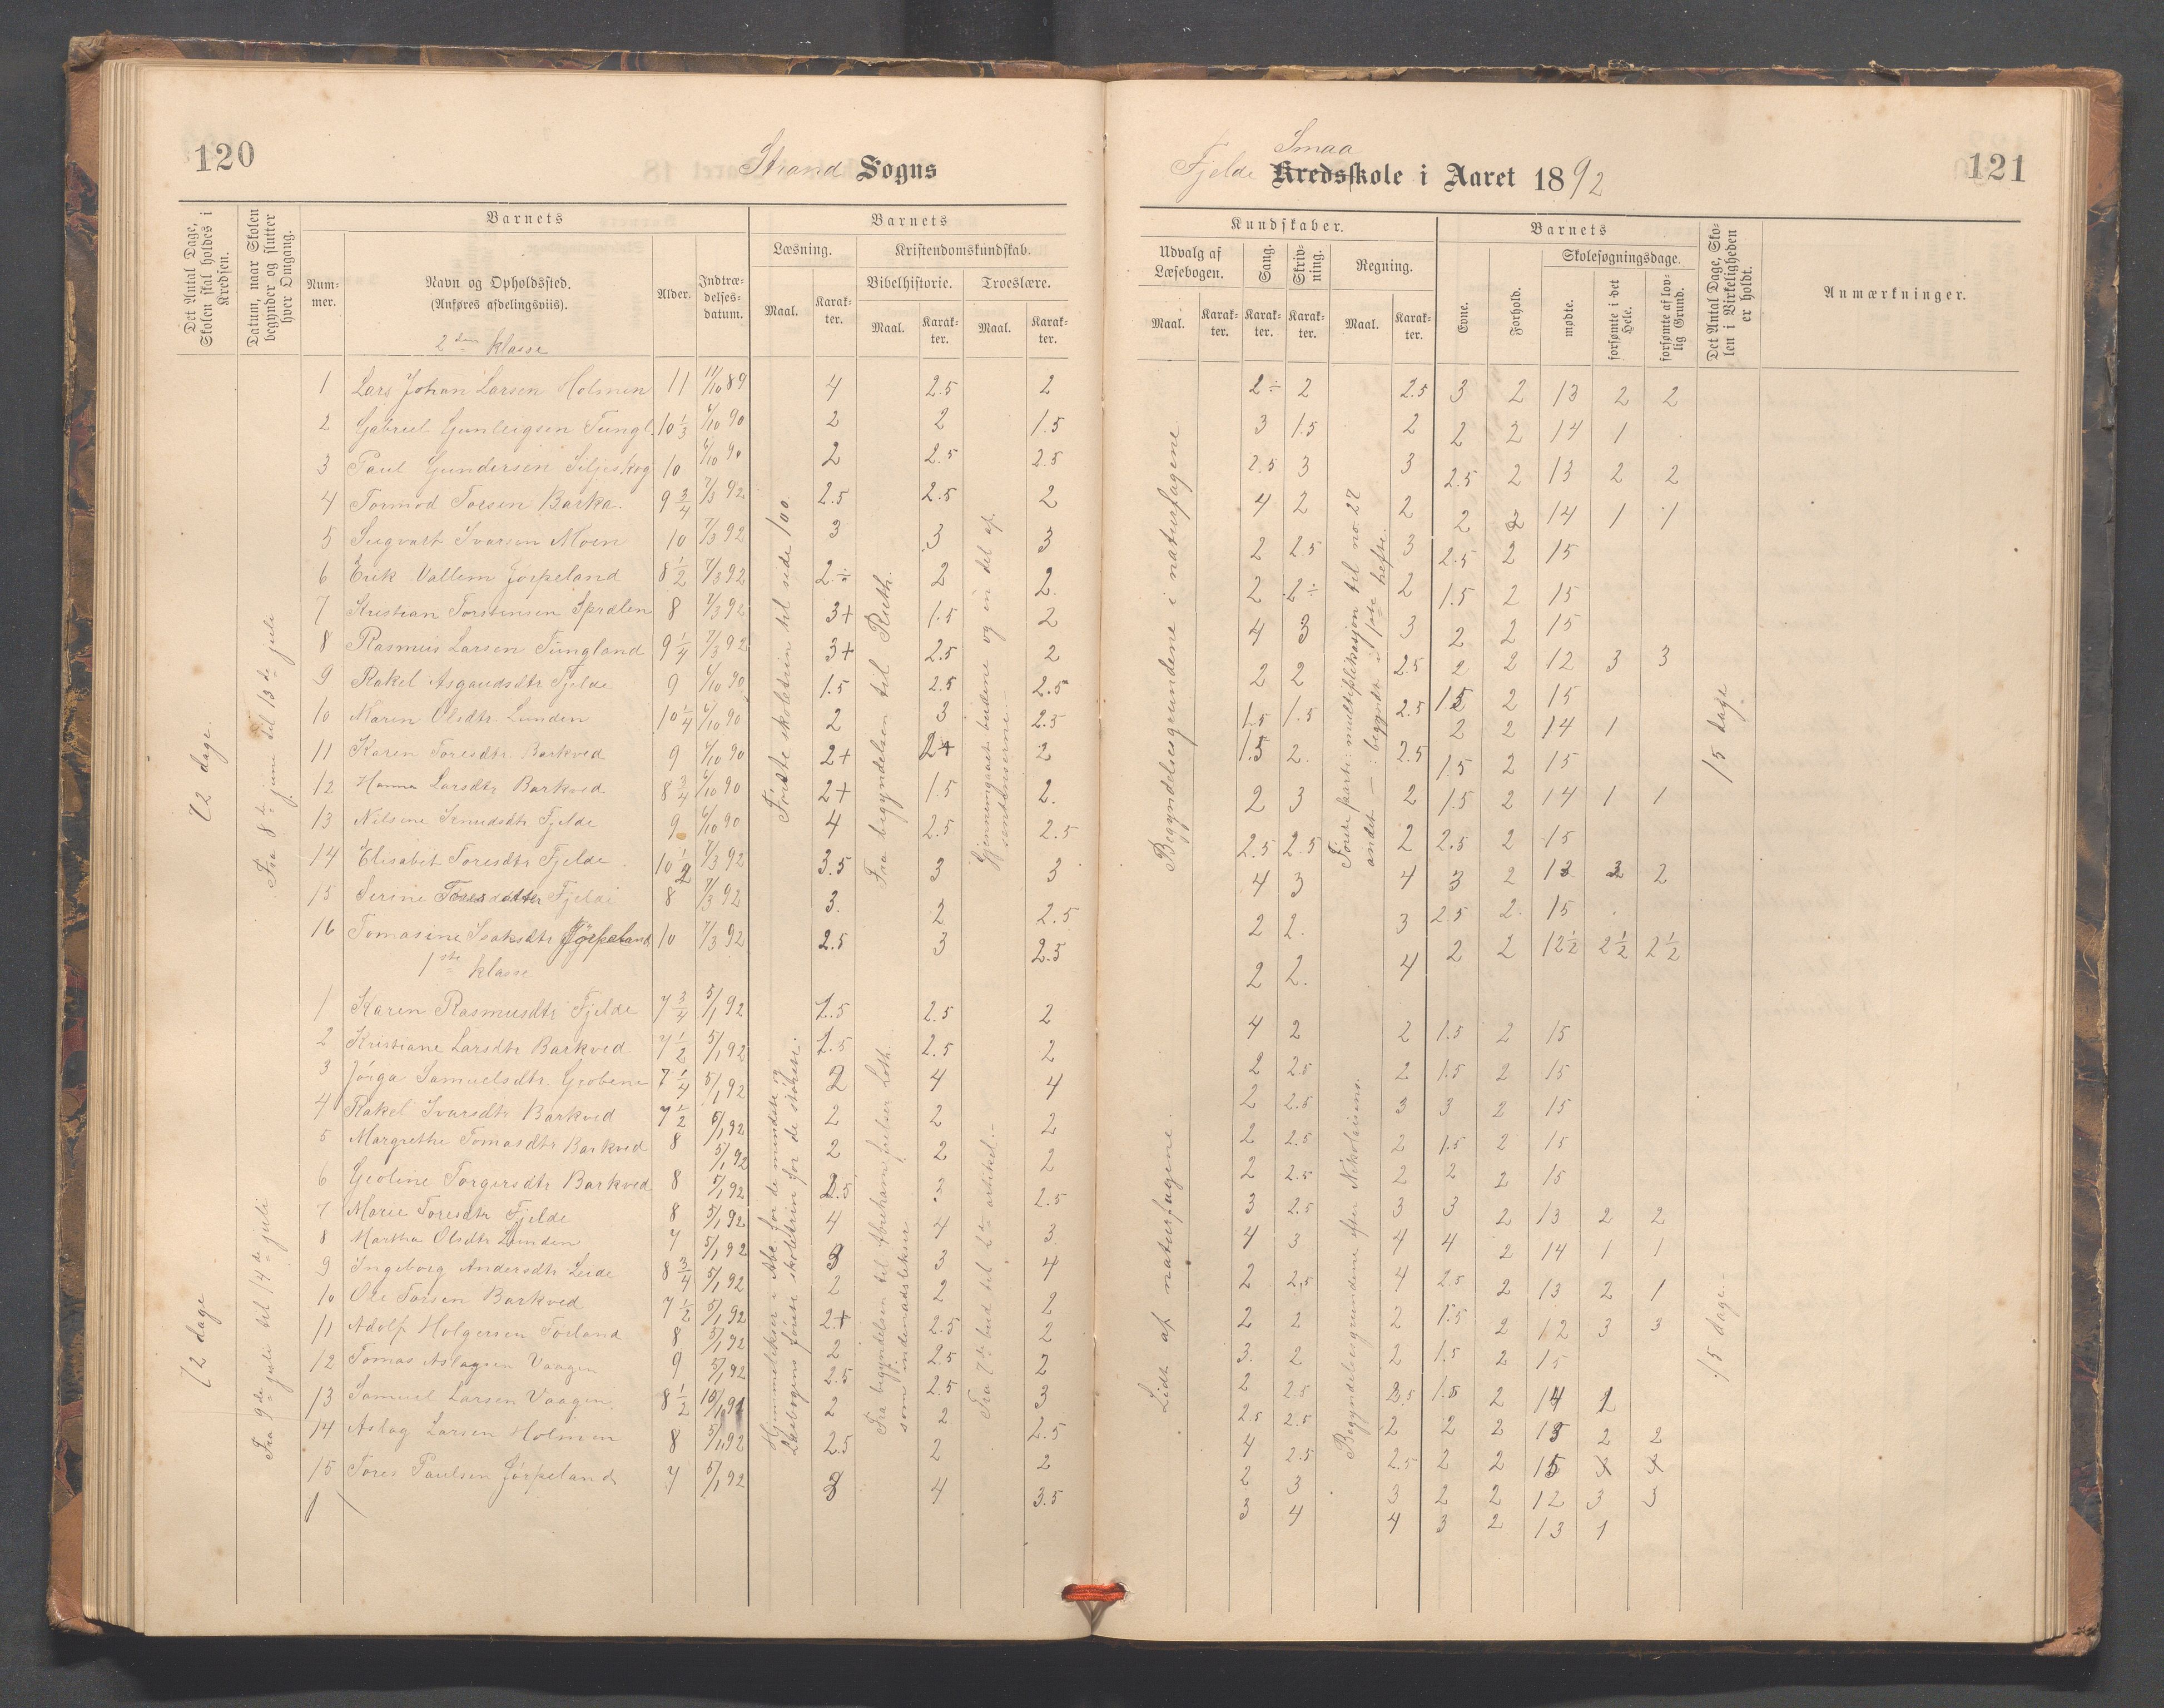 120
Strand Sogns
Det Antal Dage, Skolen skal holdes i Kredsen.
Datum, naar Skolen begynder og slutter hver Omgang.
Barnets
Nummer.
Navn og Opholdssted.
(Anføres afdelingsviis).
Alder.
Indtrædelses-datum.
Barnets
Læsning.
Kristendomskundskab.
Bibelhistorie.
Troeslære.
Maal. Karakter. Maal. Karakter. Maal. Karakter.
2den klasse
1 Lars Johan Larsen Holmen 11 11/10 89 4 2.5 2
2 Gabriel Gunleigsen Tungl. 10 1/3 6/10 90 2 2 1.5
3 Paul Gundersen Seljeskog 10 6/10 90 2 2.5 2.5
4 Tormod Torsen Barka. 9 3/4 7/3 92 2.5 2.5 2
5 Sigvart Ivarsen Moen 10 7/3 92 3 3 3
6 Erik Vallem Jørpeland 8 1/2 7/3 92 2÷ 2 2.
7 Kristian Torstensen Sprælen 8 7/3 92 3+ 1.5 2
8 Rasmus Larsen Tungland 9 1/4 7/3 92 3+ 2.5 2
9 Rakel Asgautsdtr Fjelde 9 6/10 90 1.5 2.5 2.5
10 Maren Olsdtr. Lunden 10 1/4 6/10 90 2 3 2.5
11 Karen Toresdtr Barkved 9 6/10 90 2+ 2+ 2
12 Hanna Larsdtr Barkved 8 3/4 6/10 90 2+ 1.5 2.
13 Nilsine Knudsdtr Fjelde 9 6/10 90 4 2.5 2.5
14 Elisabet Toresdtr Fjelde 10 1/2 7/3 92 3.5 3 3
15 Serine Toresdatter Fjelde 8 7/3 92 3. 2 2.5
16 Tomasine Isaksdtr Jørpeland 10 7/3 92 2.5 3 2.5
72 dage.
Fra 8de juni til 13de juli
Første skoletrin til side 100
Fra begyndelsen til Ruth.
Gjennemgaaet budene og en del af sentenserne.
1ste klasse
1 Karen Rasmusdtr Fjelde 7 3/4 5/1 92 1.5 2.5 2
2 Kristiane Larsdtr Barkved 7 1/2 5/1 92 1.5 2.5 2
3 Jørga Samuelsdtr. Grobene 7 1/4 5/1 92 2 4 4
4 Rakel Ivarsdtr Barkved 7 1/2 5/1 92 2 2 2
5 Margrethe Tomasdtr Barkved 8 5/1 92 2 2 2
6 Geoline Torgersdtr Barkved 8 5/1 92 2.5 3 2.5
7 Marie Toresdtr Fjelde 8 5/1 92 4 4 3
8 Martha Olsdtr Lunden 7 5/1 92 3 3 4
9 Ingeborg Andersdtr Leide 8 3/4 5/1 92 2 2 2
10 Ole Torsen Barkved 7 1/2 5/1 92 2+ 2.5 2
11 Adolf Holgersen Torland 8 5/1 92 2 2.5 2
12 Tomas Aslagsen Vaagen 9 5/1 92 2.5 2.5 3
13 Samuel Larsen Vaagen 8 1/2 10/1 91 2 2 2.5
14 Aslag Larsen Holmen 8 5/1 92 2.5 2 2
15 Tores Paulsen Jørpeland 7 5/1 92 3 4 3.5
72 dage
Fra 9de juli til 14de juli
Hjemmelekser i Abc. for de mindste og Læsebogens første skoletrin for de større.
Fra begyndelsen til Abrahams frelser Loth. som indenadslekser
Fra 7de bud til 2den artikel.
121
Fjelde Smaa Kredsskole i Aaret 1892
Kundskaber.
Udvalg af Læsebogen.
Sang.
Skrivning.
Regning.
Maal. Karakter. Karakter. Karakter. Maal. Karakter.
Barnets
Evne.
Forhold.
Skolesøgningsdage.
mødte.
forsømte i det Hele.
forsømte af lovlig Grund.
Det Antal Dage, Skolen i Virkeligheden er holdt.
Anmærkninger.
2÷ 2 2.5 3 2 13 2 2
3 1.5 2 2 2 14 1
2.5 3 3 2.5 2 13 2 2
4 2 2 2 2 14 1 1
2 2.5 3 2.5 2 15
2 2÷ 2 1.5 2 15
4 3 3 2 2 15
2 2 2.5 2 2 12 3 3
1.5 1.5 2.5 1.5 2 15
1.5 2. 2.5 2 2 14 1
2 3 2 1.5 2 15
2.5 2.5 2 1.5 2 14 1 1
4 3 4 2.5 2 15
2 2. 3 3 2 13 2 2
2 2. 4 2.5 2 15
2 2 12 1/2 2 1/2 2 1/2
Begyndelsesgrundene i naturfagene
Første part: multiplikasjon til no 27
andet — : begyndt i første hefte.
15 dage
4 2 2 1.5 2 15
2 2.5 2 1.5 2 15
2 2.5 3 3 2 15
2 2.5 2 1.5 2 15
2 2.5 2 2 2 15
3 2.5 3 3 2 13 2 2
4 3 4 4 2 14 1 1
2 2.5 4 2.5 2 13 2 1
2 2 2 1.5 2 12 3 3
3. 2 2 1.5 2 15
2 2.5 2.5 1.5 2 14 1
2.5 2.5 2 2 2 13 2 2
4 2.5 2.5 2 2 15
2 3 3 2 2 12 3 3
3 4 4 3 2 13 1
Lidt af naturfagene.
Begyndelsesgrundene efter Nikolaisens.
15 dage.